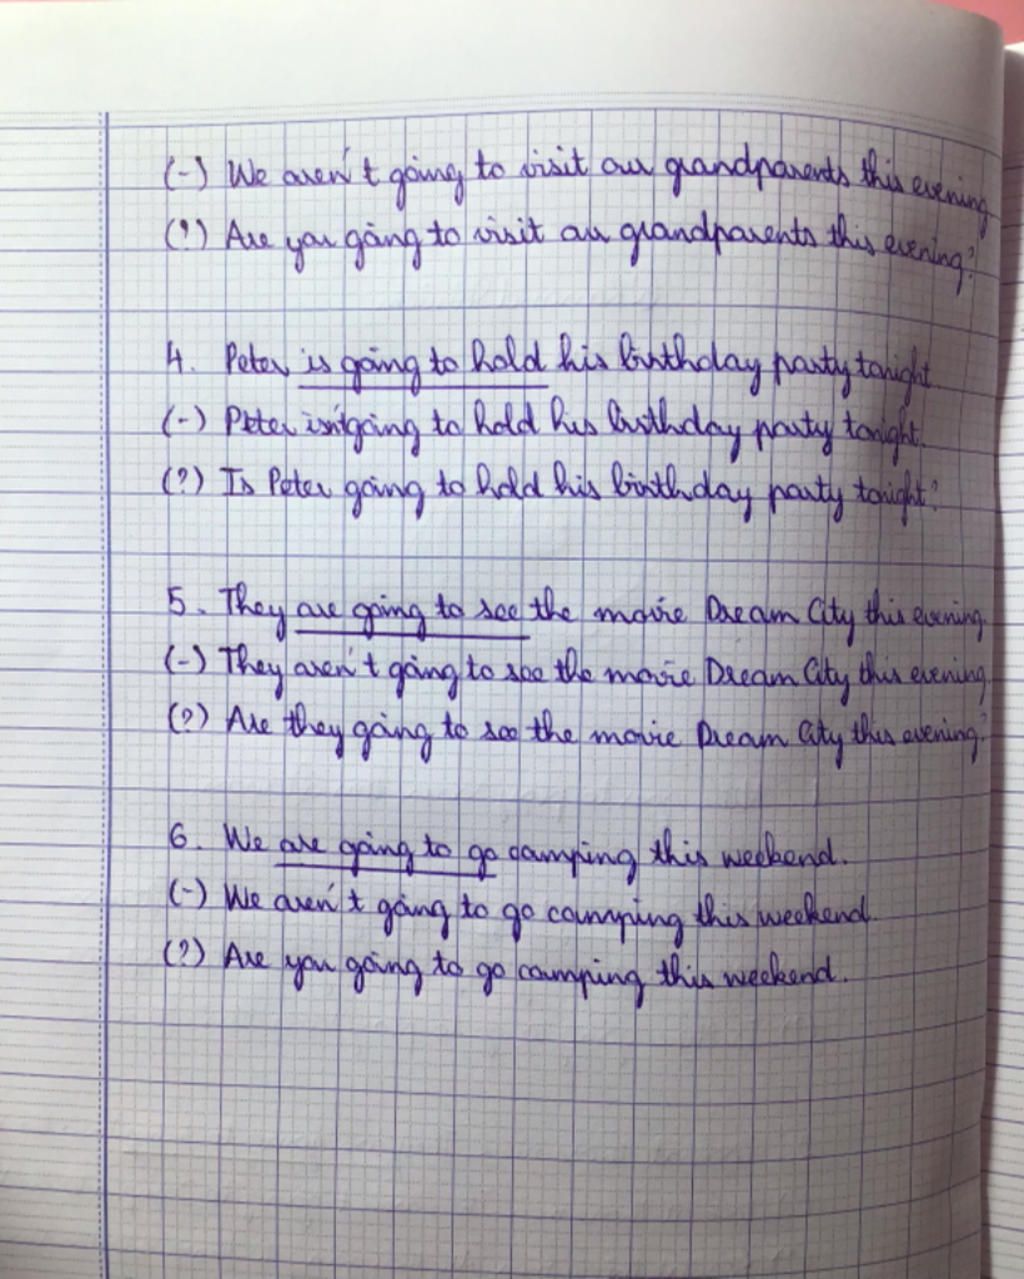 (-) We aren't going to visit our grandparents this evening
(?) Are you going to visit our grandparents this evening?
4. Peter is going to hold his birthday party tonight.
(-) Peter isn't going to hold his birthday party tonight.
(?) Is Peter going to hold his birthday party tonight?
5. They are going to see the movie Dream City this evening.
(-) They aren't going to see the movie Dream City this evening.
(?) Are they going to see the movie Dream City this evening?
6. We are going to go camping this weekend.
(-) We aren't going to go camping this weekend.
(?) Are you going to go camping this weekend.